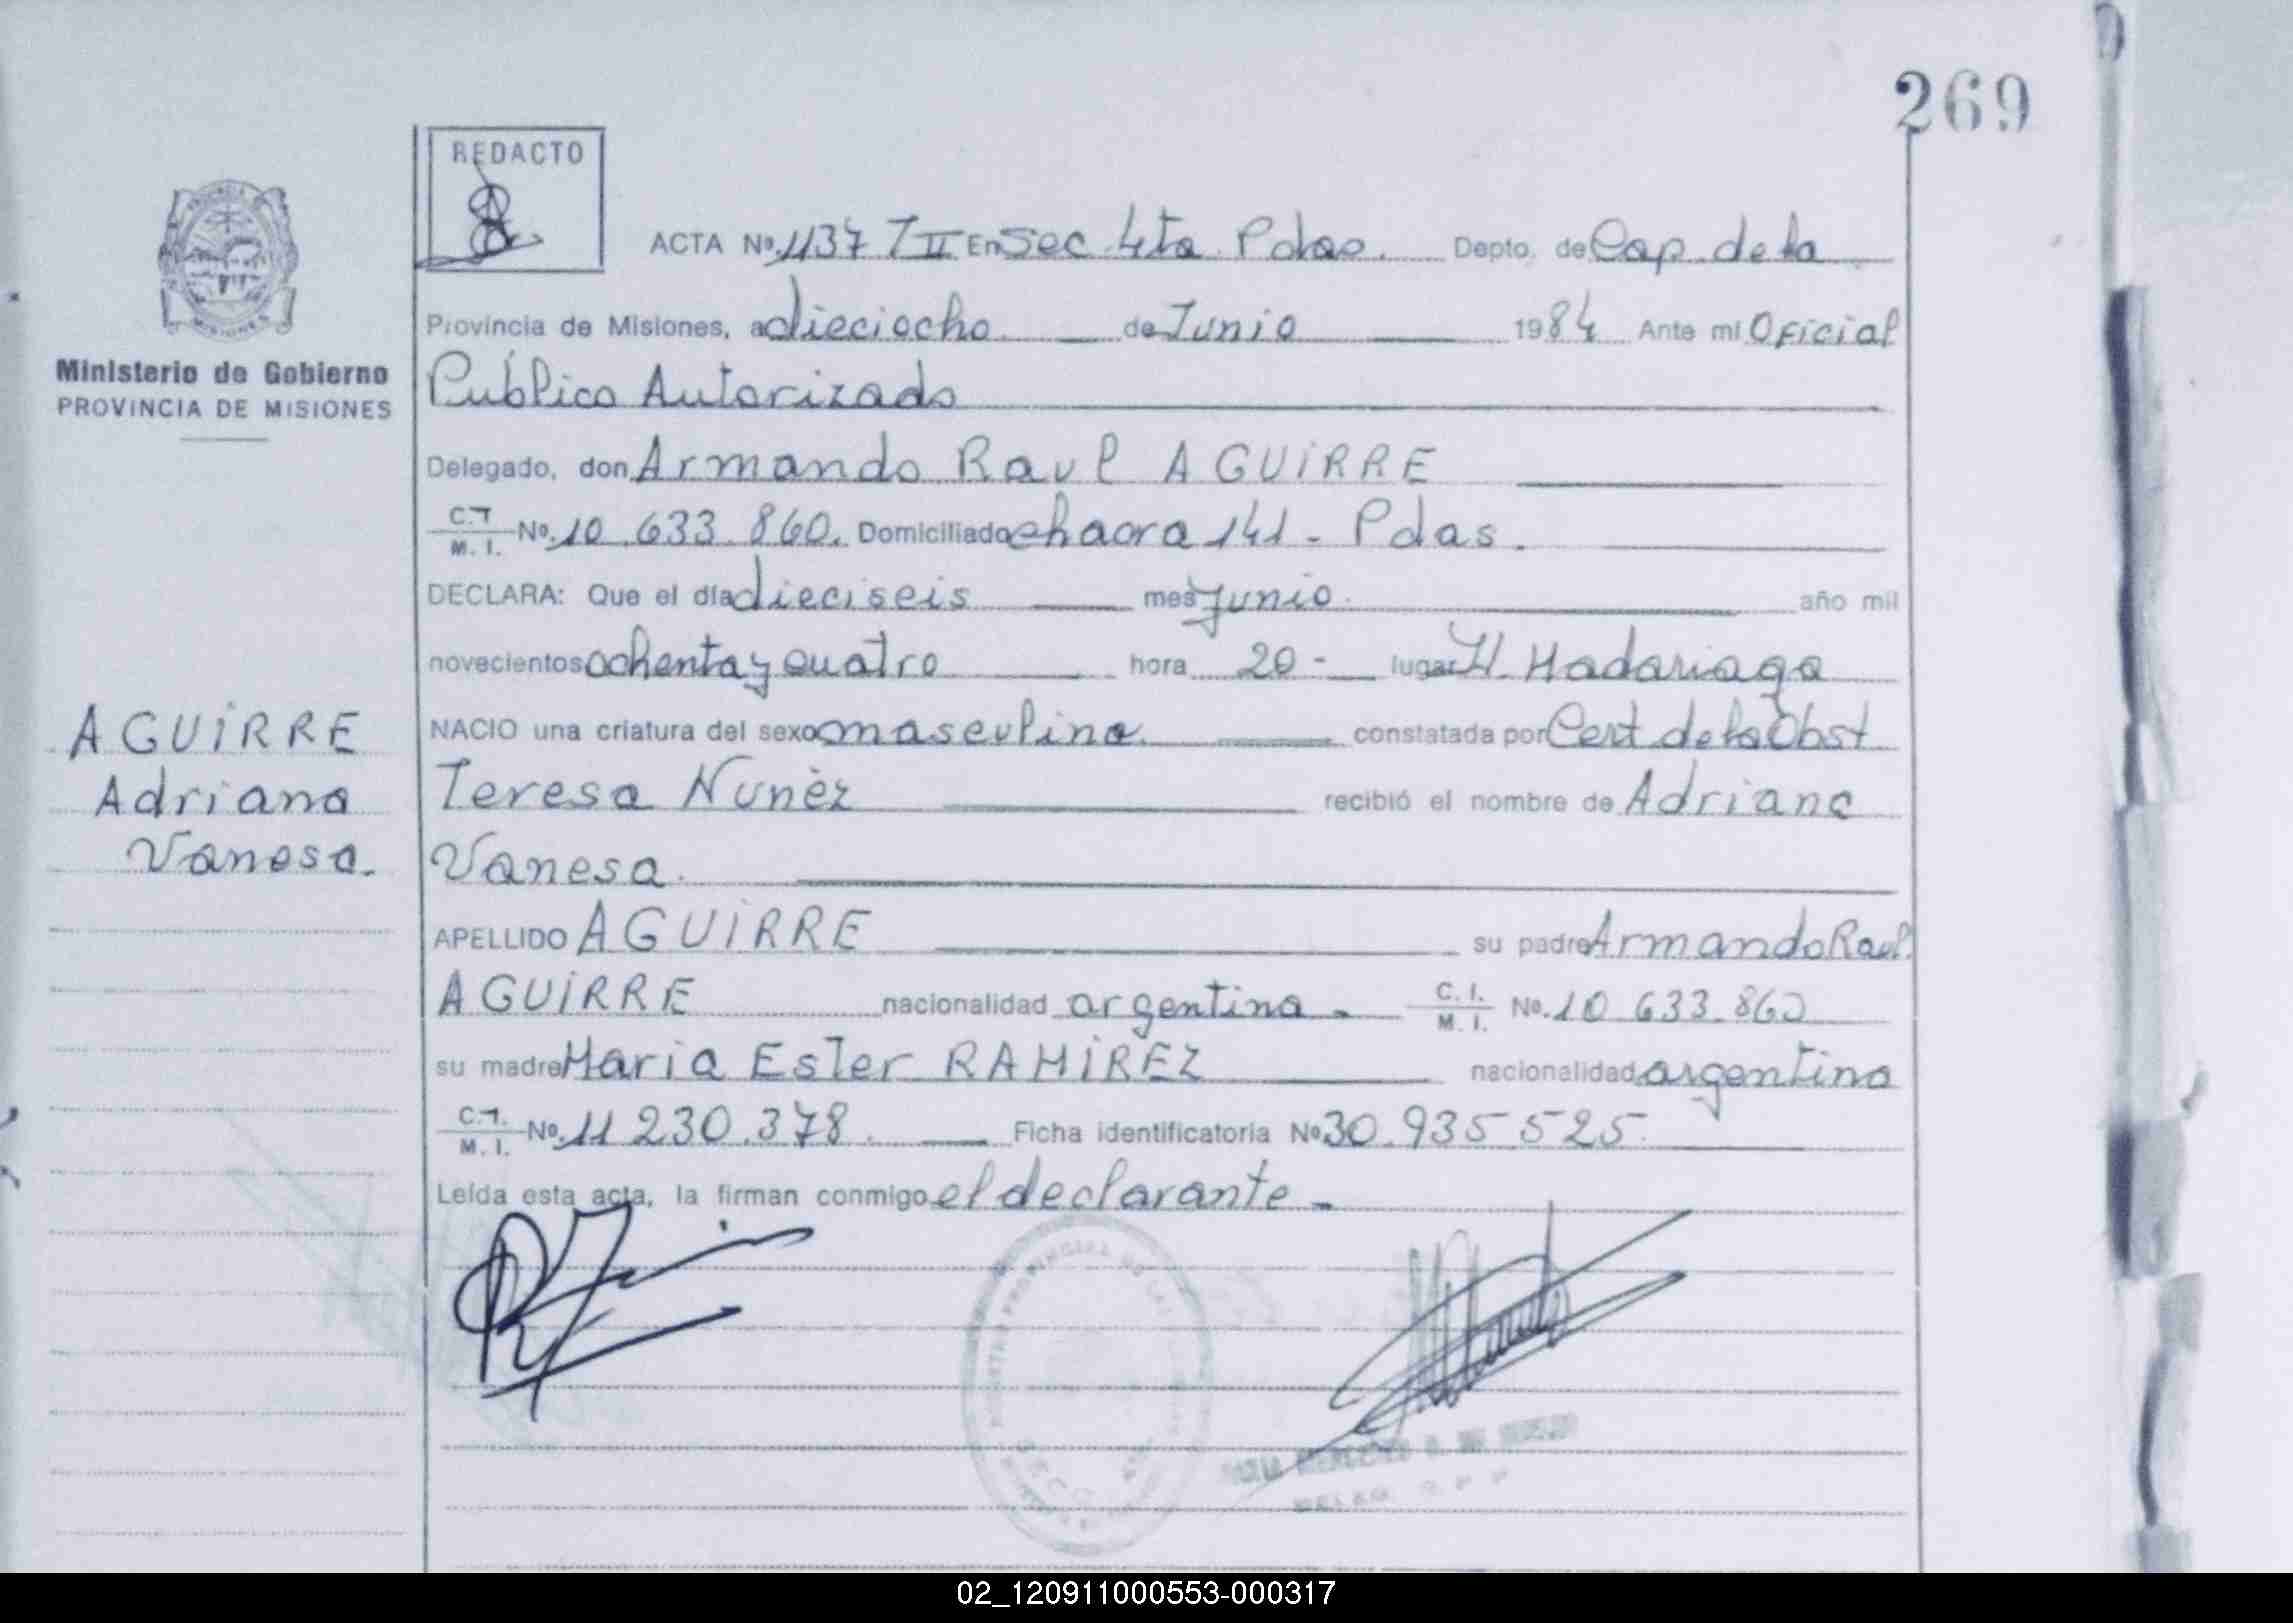 269
REDACTO
ACTA Nº. 1137 T II En Sec 4ta Pdas. Depto. de Cap. de la
Provincia de Misiones, a dieciocho de Junio 1984 Ante mi Oficial
Ministerio de Gobierno
PROVINCIA DE MISIONES
Público Autorizado
Delegado, don Armando Raul AGUIRRE
C.I. M. I. No. 10.633.860. Domiciliado chacra 141 - Pdas.
DECLARA: Que el día dieciseis mes Junio año mil
novecientos ochenta y cuatro hora 20 - lugar H. Madariaga
NACIO una criatura del sexo masculino constatada por Cert de la Obst
Teresa Nunèz recibió el nombre de Adriana
Vanesa.
AGUIRRE
Adriana
Vanesa.
APELLIDO AGUIRRE su padre Armando Raul
AGUIRRE nacionalidad argentina - C. I. M. I. No. 10 633.860
su madre Maria Ester RAMIREZ nacionalidad argentina
C.I. M. I. No. 11 230.378. Ficha identificatoria No 30.935 525.
Leída esta acta, la firman conmigo el declarante -
02_120911000553-000317